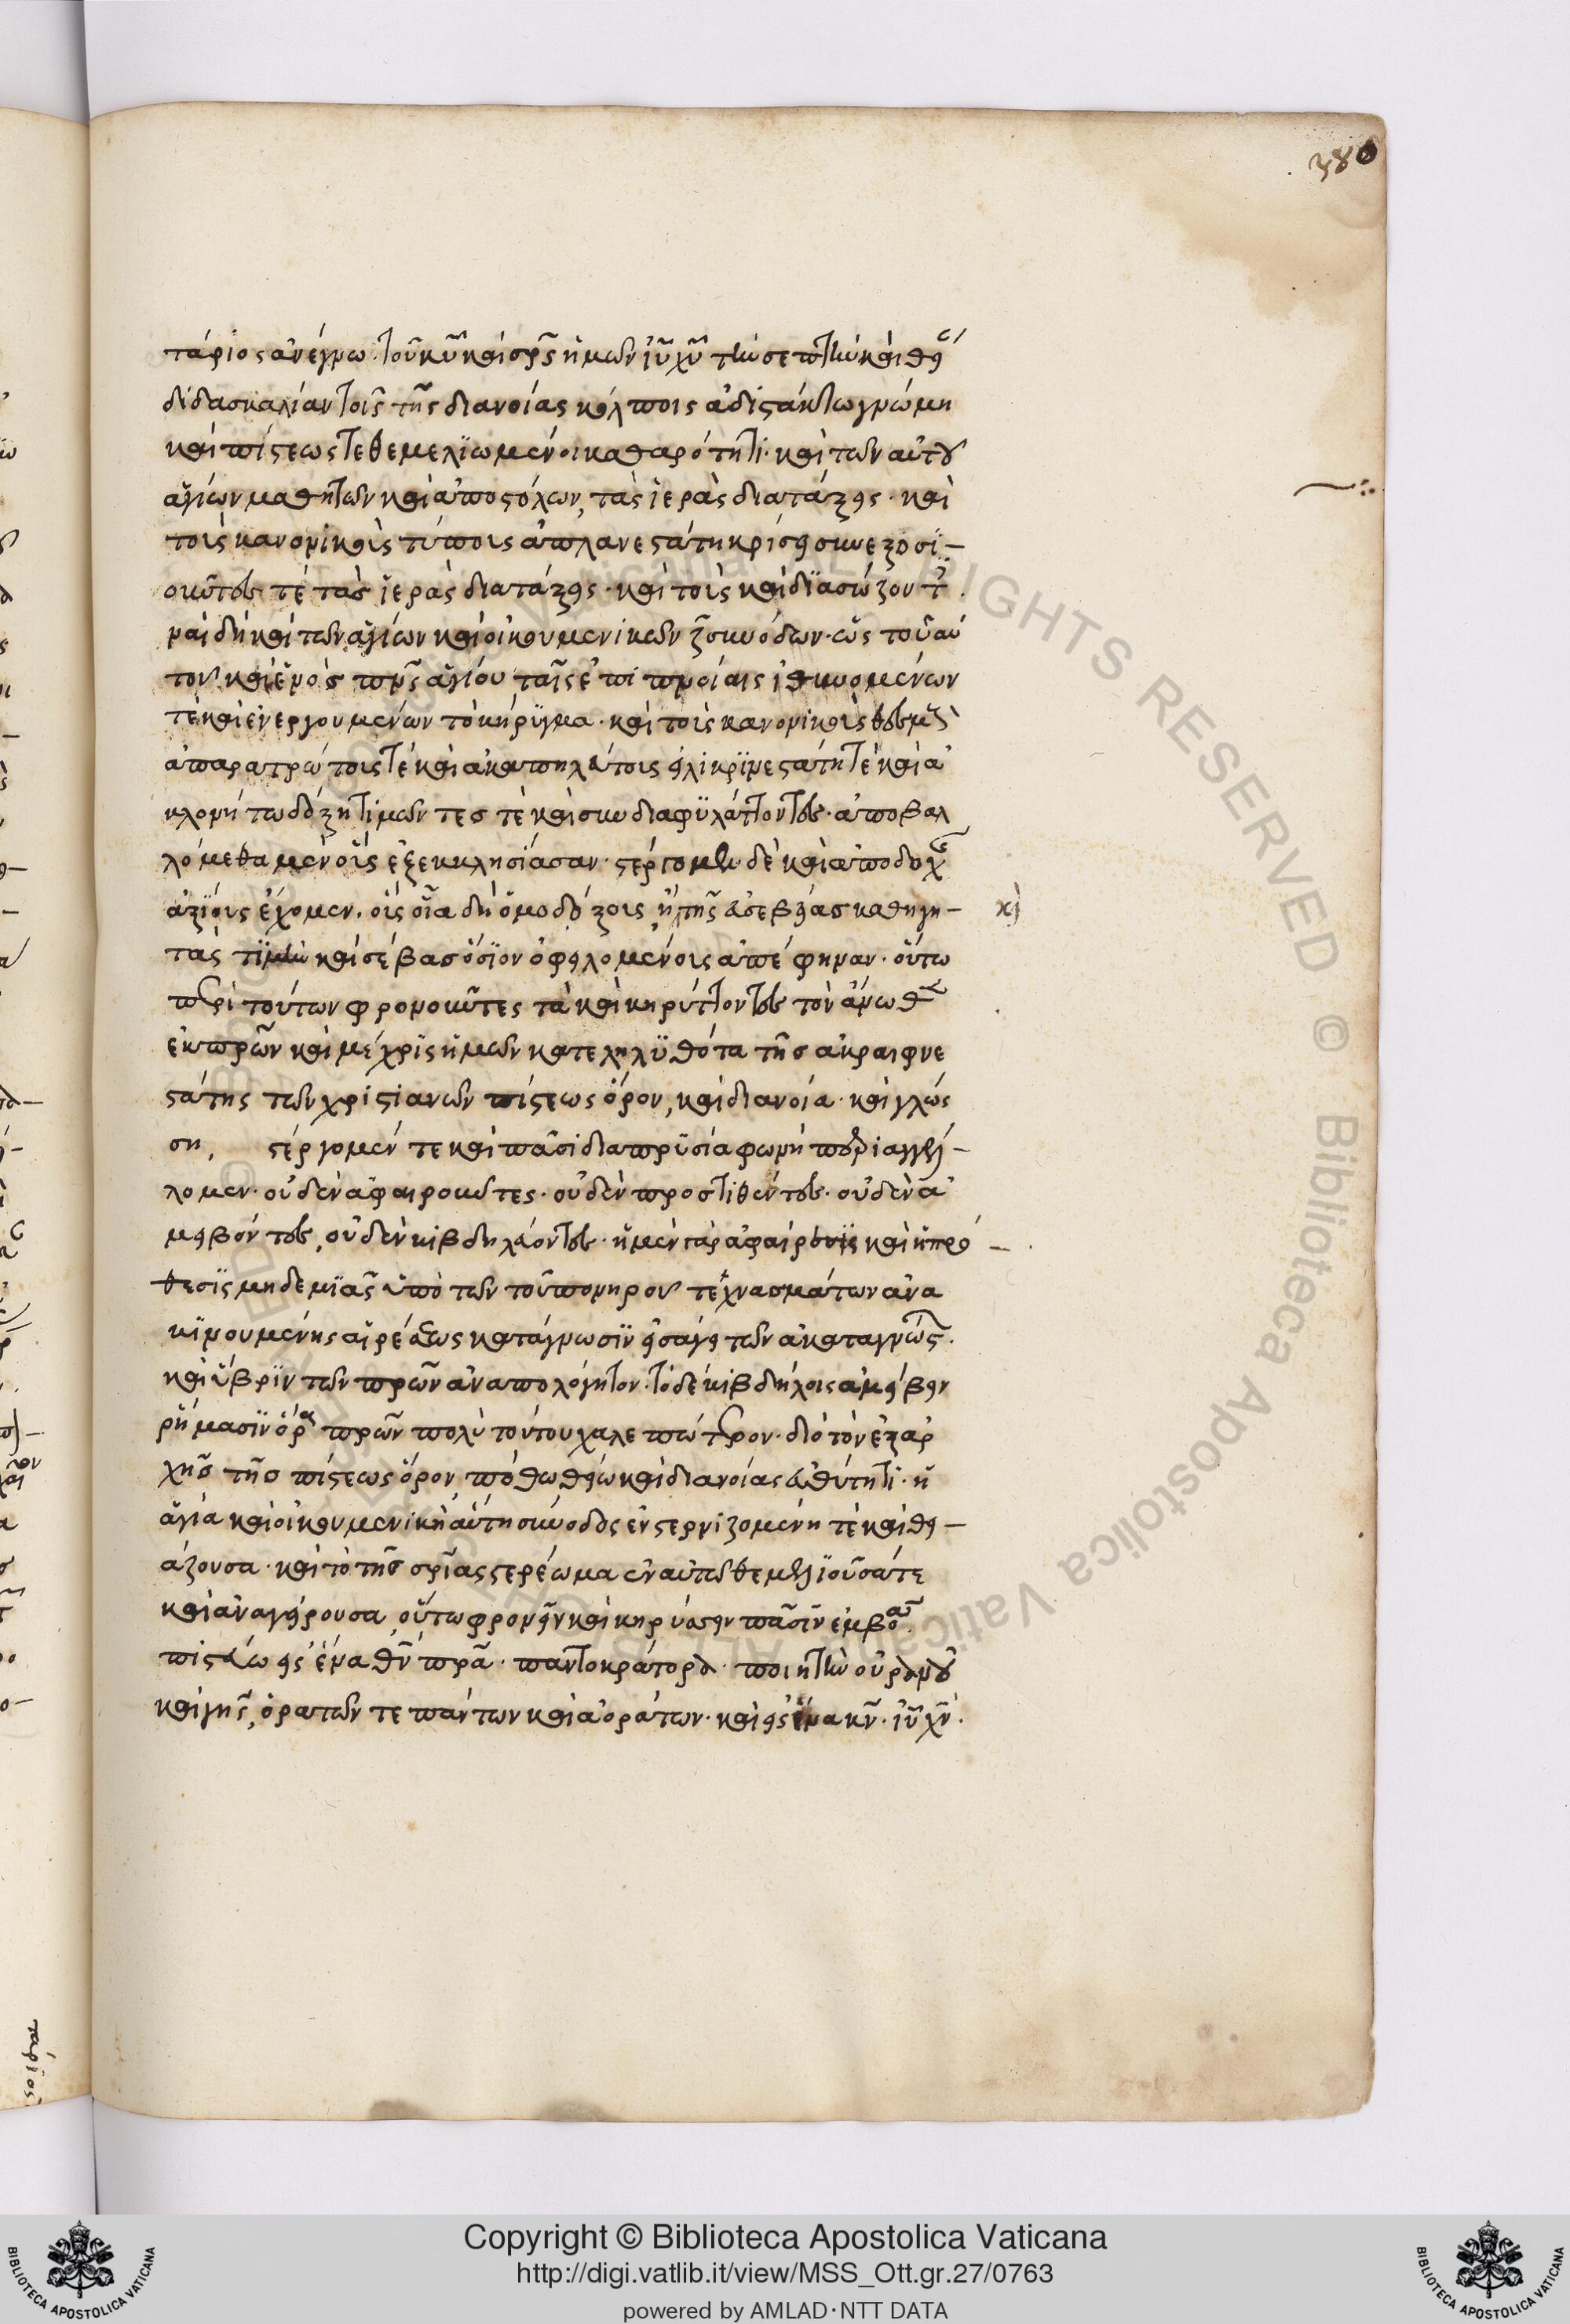 380
τάριος ἀνέγνω. τοῦ κυ καὶ σρς ἡμῶν ιυ χυ τὴν σεπτὴν καὶ θεί
διδασκαλίαν τοῖς τῆς διανοίας κόλποις ἀδιστάκτω γνώμη
καὶ πίστεως τεθεμελϊωμένοι καθαρότητι· καὶ τῶν αὐτοῦ
ἁγίων μαθητῶν καὶ ἀποστόλων, τὰς ἱερὰς διατάξεις· καὶ
τοῖς κανονικοῖς τύποις ἀπλανεστάτη κρίσει συνεξοσϊ-
οῦντες τέ τὰς ἱερὰς διατάξεις· καὶ τοὺς καὶ
ναὶ δὴ καὶ τῶν ἁγίων καὶ οἰκουμενικῶν ζ συνόδων· ὡς τοῦ αὐ
τοῦ καὶ ἑνὸς πνς ἁγίου ταῖς ἐπιπνοίαις ἰθυνομένων
τὲ καὶ ἐνεργουμένων τὸ κήρϋγμα· καὶ τοὺς κανονικοὺς θεσμοὺς
ἀπαρατρώτοις τὲ καὶ ἀκαπηλεύτοις εἰλικρϊνεστάτη τὲ καὶ ἀ
κλονήτω δόξη τιμῶντες τὲ καὶ συνδιαφϋλάττοντες· ἀποβαλ
λόμεθα μὲν οὓς ἐξεκκλησίασαν· στέργομεν δὲ καὶ ἀποδοχῆς
ἀξίους ἔχομεν. οὓς οἷα δὴ ὁμοδόξοις ἢ τῆς εὐσεβείας καθηγη- κὶ
τὰς τϊμὴν καὶ σέβας ὅσϊον ὀφειλομένοις ἀπέφηναν· οὕτω
περὶ τούτων φρονοῦντες τὲ καὶ κηρύττοντες τὸν ἄνωθεν
ἐκ πρων καὶ μέχρϊς ἡμῶν κατεληλϋθότα τῆς ἀκραιφνε
στάτης τῶν χριστιανῶν πίστεως ὅρον, καὶ διανοία· καὶ γλώσ
ση, στέργομέν τε καὶ πᾶσι διαπρϋσία φωνῆ περιαγγέλ-
λομεν· οὐδὲν ἀφαιροῦντες· οὐδὲν προστιθέντες· οὐδὲν ἀ
μείβοντες, οὐδὲν κιβδηλεύοντες· ἡ μὲν γὰρ ἀφαίρεσϊς καὶ ἡ πρό-
θεσϊς μηδεμϊᾶς ὑπὸ τῶν τοῦ πονηροῦ τεχνασμάτων ἀνα
κϊνουμένης αἱρέσεως κατάγνωσϊν εἰσάγει τῶν ἀκαταγνώστ.
καὶ ὕβρϊν τῶν πρων ἀναπολόγητον. τὸ δὲ κιβδήλοις ἀμείβειν
ῥήμασϊν ὅρα πρων πολὺ τούτου χαλεπώτερον· διὸ τὸν ἐξ ἀρ
χῆς τῆς πίστεως ὅρον, πόθω θείω καὶ διανοίας εὐθύτητι· ἡ
ἁγία καὶ οἰκουμενικὴ αὕτη σύνοδος ἐνστερνιζομένη τὲ καὶ θει-
άζουσα· καὶ τὸ τῆς σρίας στερέωμα ἐν αὐτῶ θεμελϊοῦσά τε
καὶ ἀναγείρουσα, οὕτω φρονεῖν καὶ κηρύσσειν πᾶσϊν ἐμβοᾶ.
πιστεύω εἰς ἕνα θν πρα· παντοκράτορα· ποιητὴν οὐρανοῦ
καὶ γῆς, ὁρατῶν τε πάντων καὶ ἀοράτων· καὶ εἰς ἕνα κν· ιν χν.
Copyright © Biblioteca Apostolica Vaticana
http://digi.vatlib.it/view/MSS_Ott.gr.27/0763
powered by AMLAD·NTT DATA